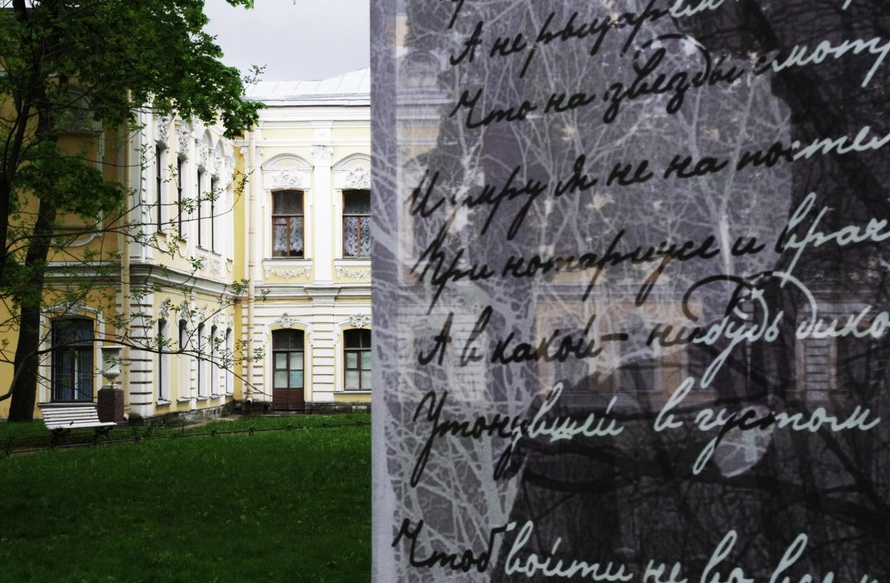 А не рыцарем
Что на звезды смотр
И умру я не на посте
При нотариусе и врач
А в какой-нибудь дико
Утонувшей в густом
Чтоб войти не во все